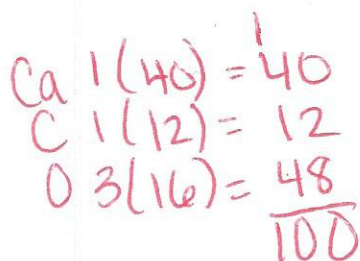 1
Ca 1(40) = 40
C 1(12) = 12
O 3(16) = 48
100